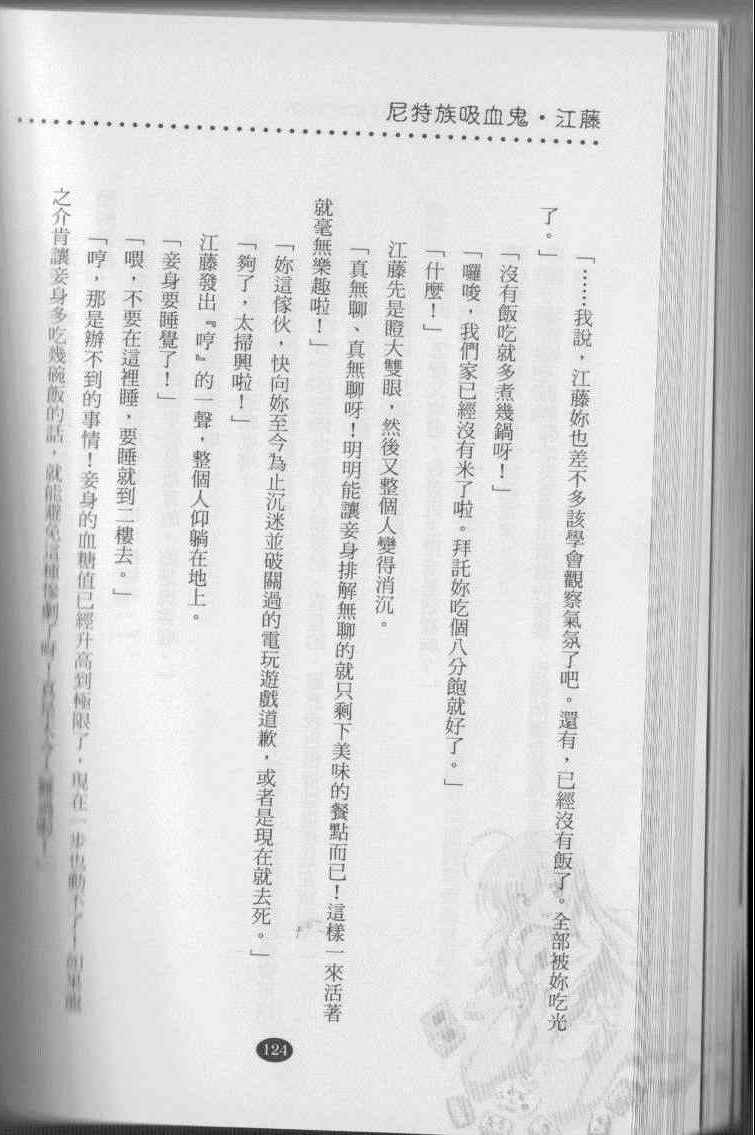 尼特族吸血鬼・江藤
「……我說，江藤妳也差不多該學會觀察氣氛了吧。還有，已經沒有飯了。全部被妳吃光
了。」
「沒有飯吃就多煮幾鍋呀！」
「囉唆，我們家已經沒有米了啦。拜託妳吃個八分飽就好了。」
「什麼！」
江藤先是瞪大雙眼，然後又整個人變得消沉。
「真無聊、真無聊呀！明明能讓妾身排解無聊的就只剩下美味的餐點而已！這樣一來活著
就毫無樂趣啦！」
「妳這傢伙，快向妳至今為止沉迷並破關過的電玩遊戲道歉，或者是現在就去死。」
「夠了，太掃興啦！」
江藤發出『哼』的一聲，整個人仰躺在地上。
「妾身要睡覺了！」
「喂，不要在這裡睡，要睡就到二樓去。」
「哼，那是辦不到的事情！妾身的血糖值已經升高到極限了，現在一步也動不了。如果龍
之介肯讓妾身多吃幾碗飯的話，就能避免這種慘劇了呀！
124